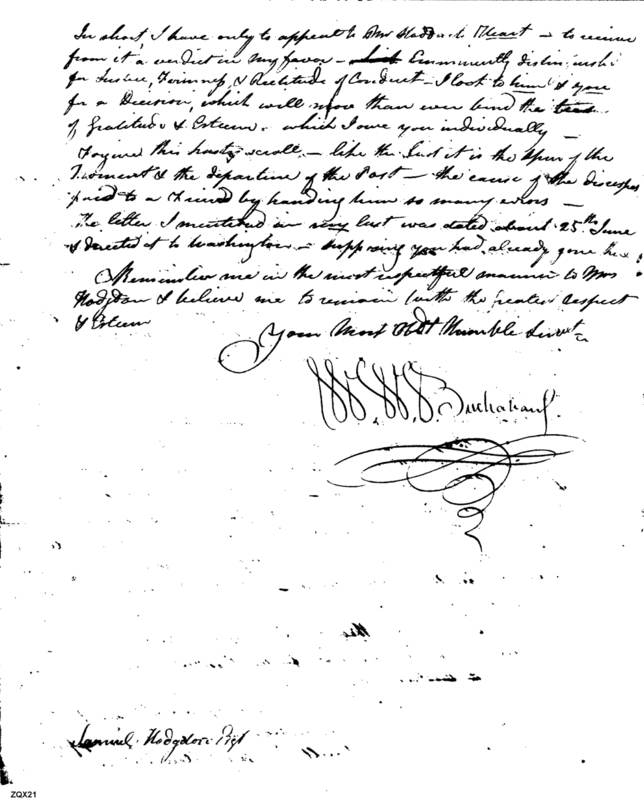 In short, I have only to appeal to Mr Hodgdon's Heart – to receive
from it a verdict in my favor – Eminently distinguish
for Justice, Fairness, & Rectitude of Conduct – I look to him & you
for a Decision, which will more than ever bind the ties
of Gratitude & Esteem, which I owe you individually –
Forgive this hasty scroll, – like the last it is the Spur of the
Moment & the departure of the Post – the cause of the disrespect
paid to a Friend by handing him so many errors –
The letter I mentioned in my last was dated about 25th June
& directed it to Washington – supposing you had already gone
Remember me in the most respectful manner to Mrs
Hodgdon & believe me to remain with the greatest respect
& Esteem
Your Most Obdt Humble Servt
W. W. Buchanan
Samuel Hodgdon
ZQX21